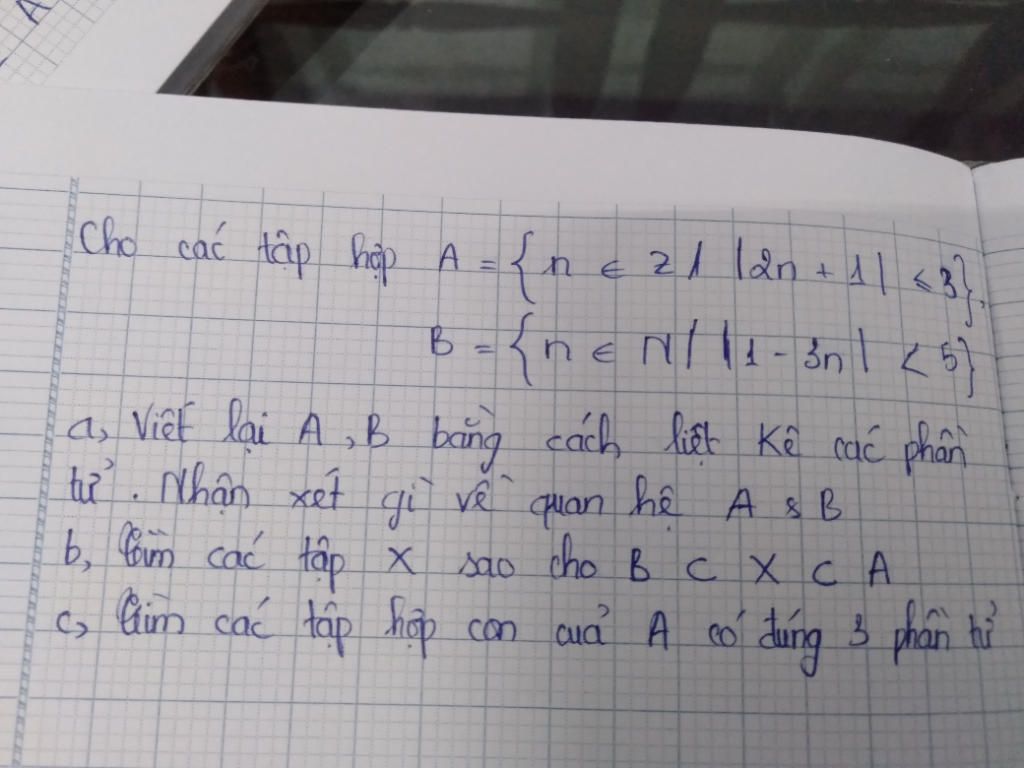 Cho các tập hợp A = { n ∈ Z / |2n + 1| ≤ 3},
B = { n ∈ N / |1 - 3n| < 5}
a, Viết lại A, B bằng cách liệt kê các phần
tử. Nhận xét gì về quan hệ A & B
b, Tìm các tập X sao cho B ⊂ X ⊂ A
c, Tìm các tập hợp con cuả A có đúng 3 phần tử